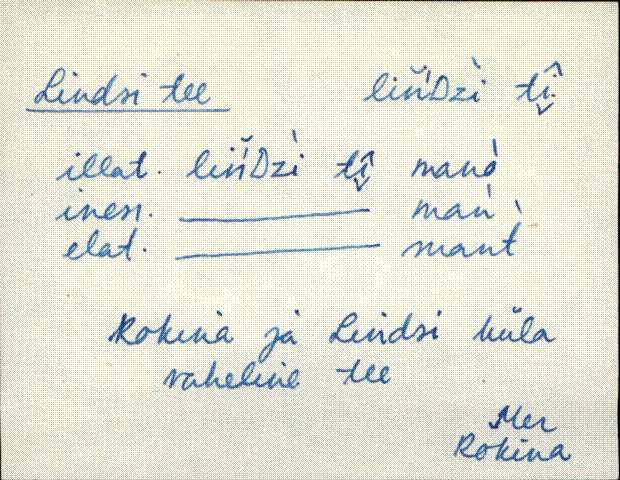 Lindsi tee liň́Dzì tî̬
illat. liň́Dzì tî̬ manò
iness. ——— maǹ
elat. ——— mant̀
Rokina ja Lindsi küla
vaheline tee
Mer
Rokina